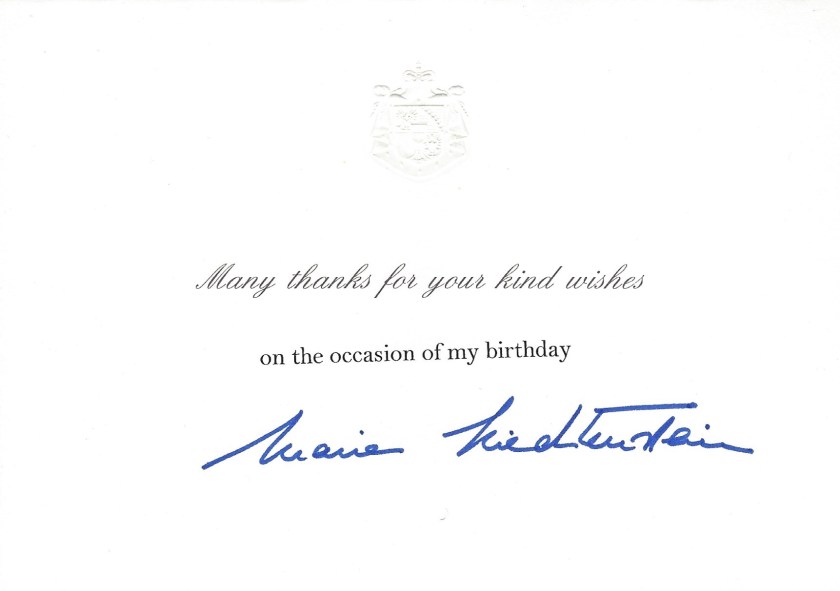 Many thanks for your kind wishes
on the occasion of my birthday
Marie Liechtenstein